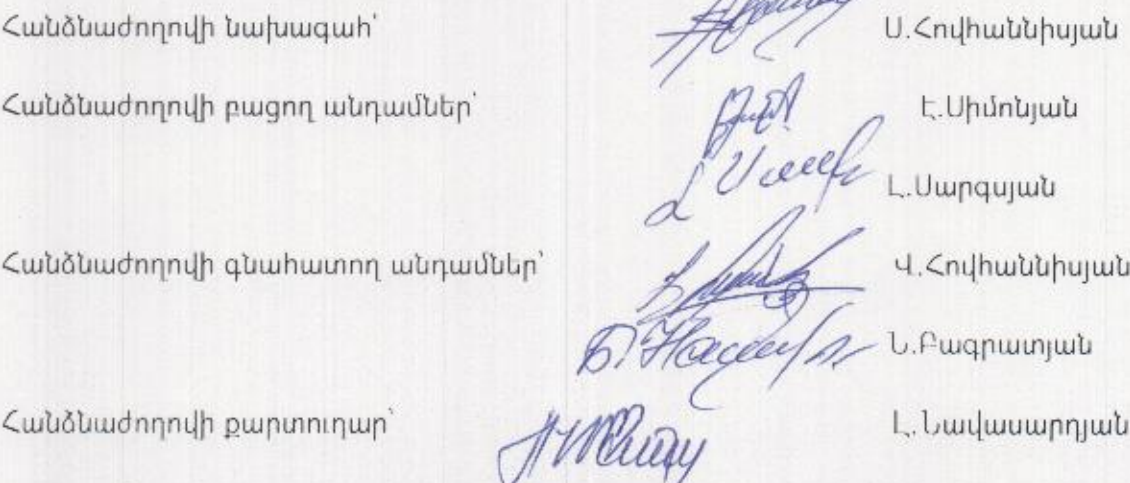 Հանձնաժողովի նախագահ՝ Ս.Հովհաննիսյան
Հանձնաժողովի բացող անդամներ՝ Է.Սիմոնյան
Լ.Սարգսյան
Հանձնաժողովի գնահատող անդամներ՝ Վ.Հովհաննիսյան
Ն.Բագրատյան
Հանձնաժողովի քարտուղար՝ Լ.Նավասարդյան